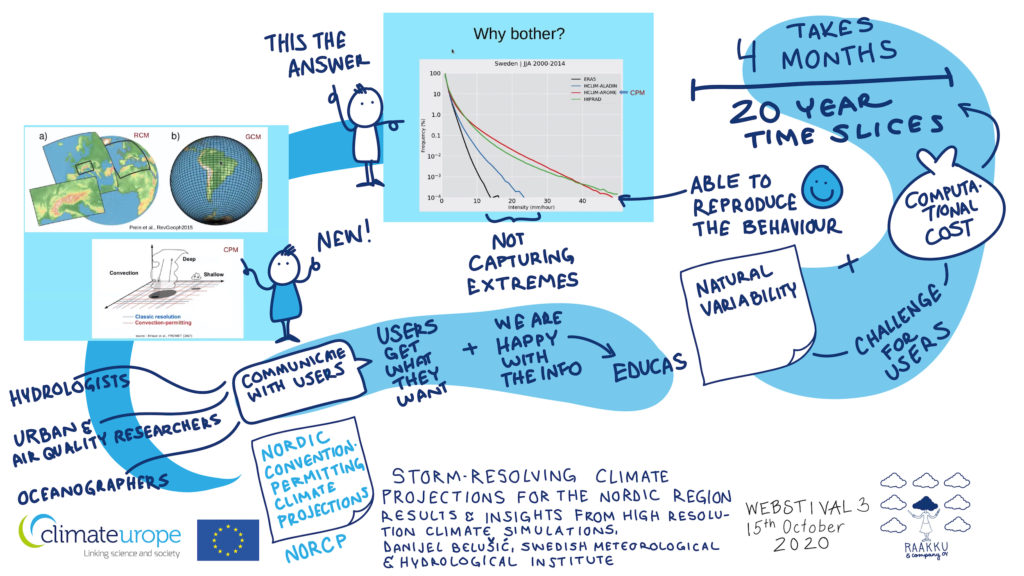 THIS THE
ANSWER
Why bother?
Sweden | JJA 2000-2014
ERA5
HCLIM-ALADIN
HCLIM-AROME
CPM
HIPRAD
Frequency (%)
100
10.0
1.0
0.1
10⁻²
10⁻³
10⁻⁴
0
10
20
30
40
Intensity (mm/hour)
NOT
CAPTURING
EXTREMES
TAKES
4 MONTHS
20 YEAR
TIME SLICES
ABLE TO
REPRODUCE
THE BEHAVIOUR
COMPUTA-
TIONAL
COST
+
NATURAL
VARIABILITY
CHALLENGE
FOR
USERS
a)
RCM
b)
GCM
Prein et al., RevGeoph2015
NEW!
CPM
Convection
Deep
Shallow
Classic resolution
Convection-permitting
HYDROLOGISTS
URBAN &
AIR QUALITY RESEARCHERS
OCEANOGRAPHERS
COMMUNICATE
WITH USERS
USERS
GET
WHAT
THEY
WANT
+
WE ARE
HAPPY
WITH
THE INFO
EDUCAS
NORDIC
CONVENTION-
PERMITTING
CLIMATE
PROJECTIONS
NORCP
STORM-RESOLVING CLIMATE
PROJECTIONS FOR THE NORDIC REGION
RESULTS & INSIGHTS FROM HIGH RESOLU-
TION CLIMATE SIMULATIONS,
DANIJEL BELUŠIĆ, SWEDISH METEOROLOGICAL
& HYDROLOGICAL INSTITUTE
WEBSTIVAL 3
15th October
2020
RAAKKU
& company oy
climateurope
Linking science and society